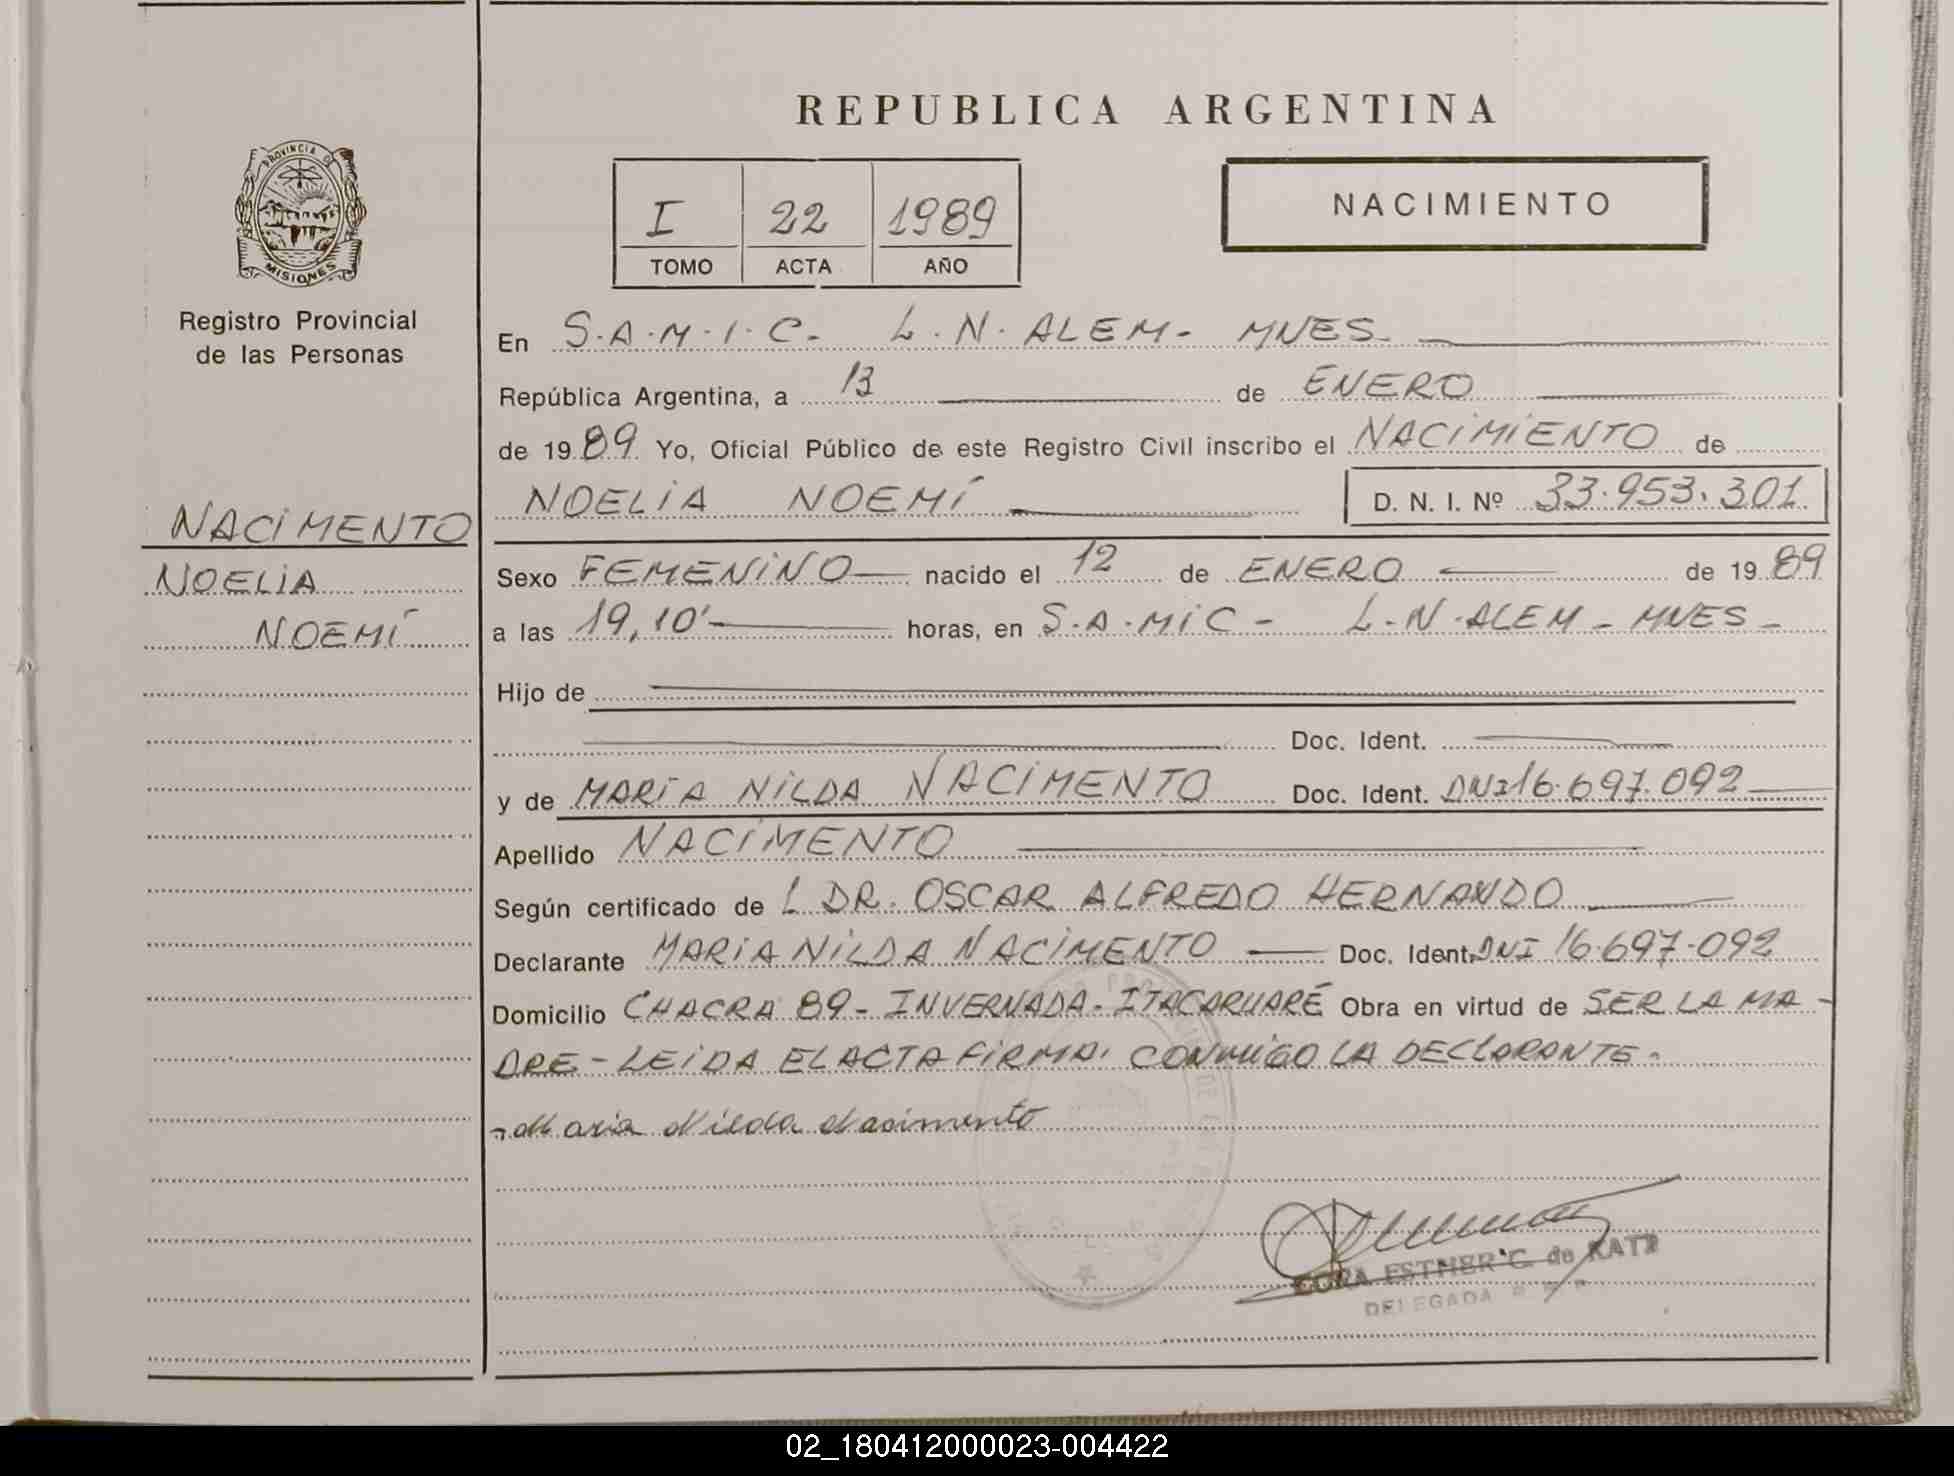 REPUBLICA ARGENTINA
PROVINCIA DE
MISIONES
Registro Provincial
de las Personas
I 22 1989
TOMO ACTA AÑO
NACIMIENTO
En S.A.M.I.C. L.N. ALEM - MNES.
República Argentina, a 13 de ENERO
de 1989 Yo, Oficial Público de este Registro Civil inscribo el NACIMIENTO de
NOELIA NOEMÍ D. N. I. Nº 33.953.301.
NACIMENTO
NOELIA
NOEMÍ
Sexo FEMENINO nacido el 12 de ENERO de 1989
a las 19,10' horas, en S.A.MIC - L.N. ALEM - MNES -
Hijo de
Doc. Ident.
y de MARIA NILDA NACIMENTO Doc. Ident. DNI 16.697.092
Apellido NACIMENTO
Según certificado de L DR. OSCAR ALFREDO HERNANDO
Declarante MARIA NILDA NACIMENTO Doc. Ident. DNI 16.697.092
Domicilio CHACRA 89 - INVERNADA - ITACARUARÉ Obra en virtud de SER LA MA -
DRE - LEIDA EL ACTA FIRMA CONMIGO LA DECLARANTE.
Maria Nilda Nacimento
ESTHER C. de KATZ
DELEGADA
02_180412000023-004422